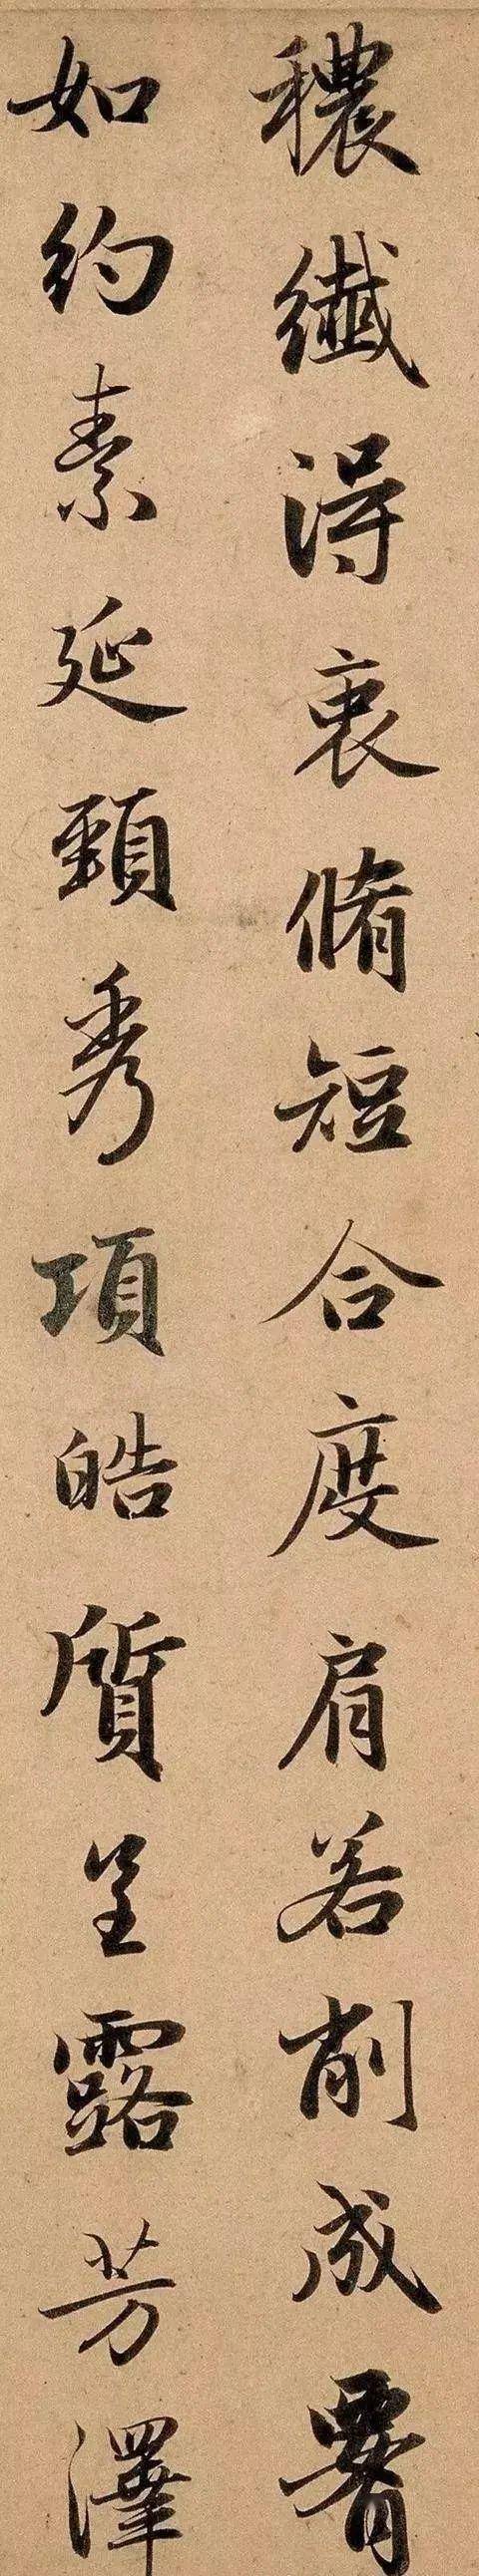 穠纖得衷脩短合度肩若削成腰
如約素延頸秀項皓質呈露芳澤